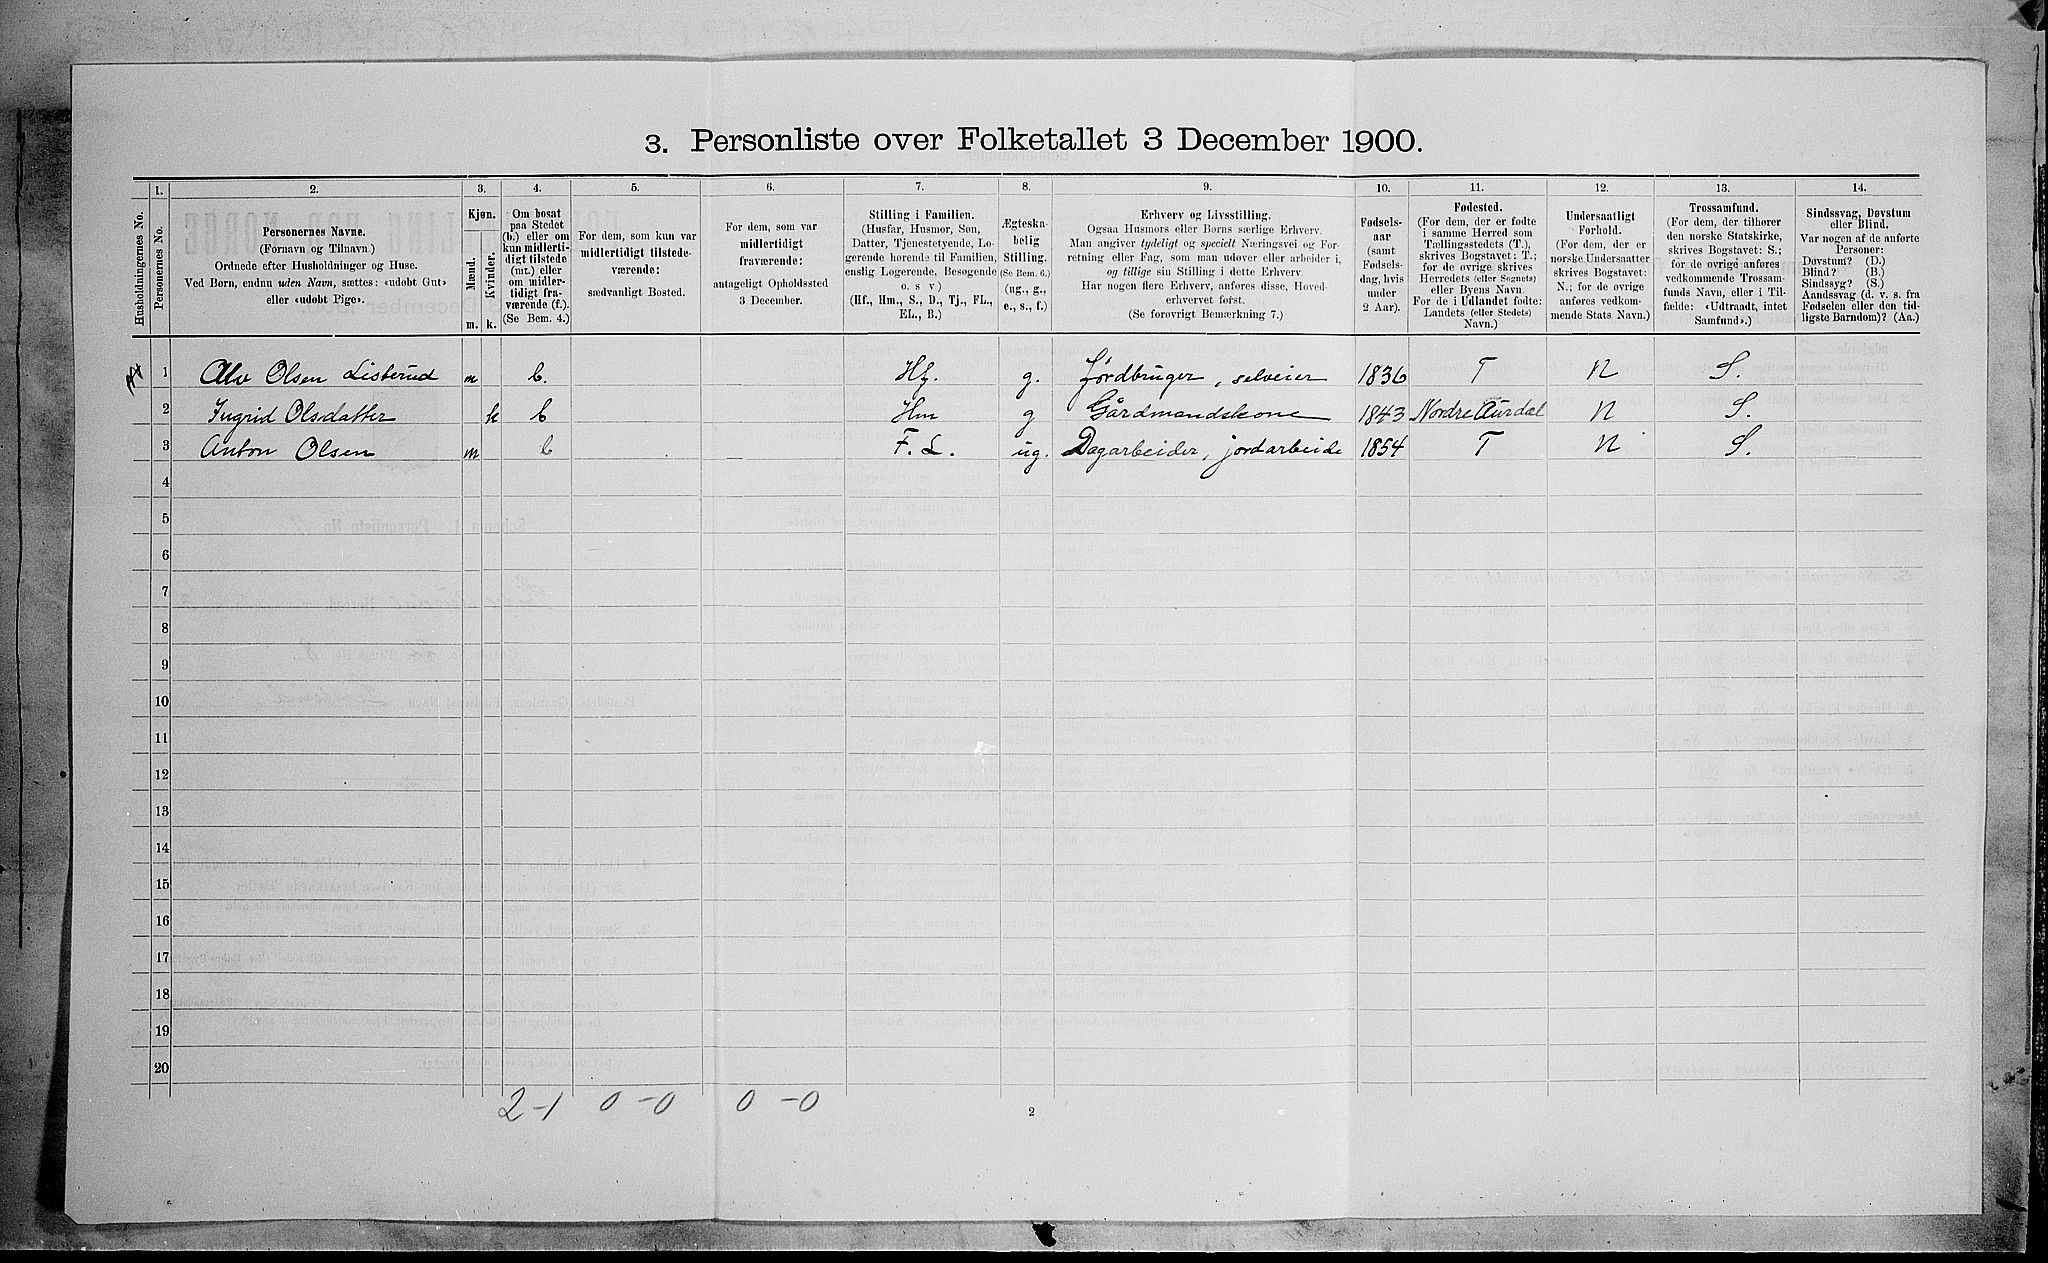 3. Personliste over Folketallet 3 December 1900.
1. 2. 3. 4. 5. 6. 7. 8. 9. 10. 11. 12. 13. 14.
Husholdningernes No.
Personernes No.
Personernes Navne.
(Fornavn og Tilnavn.)
Ordnede efter Husholdninger og Huse.
Ved Børn, endnu uden Navn, sættes: «udøbt Gut»
eller «udøbt Pige».
Kjøn.
Mænd.
Kvinder.
m. k.
Om bosat
paa Stedet
(b.) eller om
kun midlerti-
digt tilstede
(mt.) eller
om midler-
tidigt fra-
værende (f.).
(Se Bem. 4.)
For dem, som kun var
midlertidigt tilstede-
værende:
sædvanligt Bosted.
For dem, som var
midlertidigt
fraværende:
antageligt Opholdssted
3 December.
Stilling i Familien.
(Husfar, Husmor, Søn,
Datter, Tjenestetyende, Lo-
gerende hørende til Familien,
enslig Logerende, Besøgende
o. s v.)
(Hf., Hm., S., D., Tj., FL.,
EL., B.)
Ægteska-
belig
Stilling.
(Se Bem. 6.)
(ug., g.,
e., s., f.)
Erhverv og Livsstilling.
Ogsaa Husmors eller Børns særlige Erhverv.
Man angiver tydeligt og specielt Næringsvei og For-
retning eller Fag, som man udøver eller arbeider i,
og tillige sin Stilling i dette Erhverv.
Har nogen flere Erhverv, anføres disse, Hoved-
erhvervet først.
(Se forøvrigt Bemærkning 7.)
Fødsels-
aar
(samt
Fødsels-
dag, hvis
under
2 Aar).
Fødested.
(For dem, der er fødte
i samme Herred som
Tællingsstedets (T.),
skrives Bogstavet: T.;
for de øvrige skrives
Herredets (eller Sognets)
eller Byens Navn.
For de i Udlandet fødte:
Landets (eller Stedets)
Navn.)
Undersaatligt
Forhold.
(For dem, der er
norske Undersaatter
skrives Bogstavet:
N.; for de øvrige
anføres vedkom-
mende Stats Navn.)
Trossamfund.
(For dem, der tilhører
den norske Statskirke,
skrives Bogstavet: S.;
for de øvrige anføres
vedkommende Trossam-
funds Navn, eller i Til-
fælde: «Udtraadt, intet
Samfund».)
Sindssvag, Døvstum
eller Blind.
Var nogen af de anførte
Personer:
Døvstum? (D.)
Blind? (B.)
Sindssyg? (S.)
Aandssvag (d. v. s. fra
Fødselen eller den tid-
ligste Barndom)? (Aa.)
1 Alv Olsen Lisbrud m b. Hf. g. Jordbruger, selveier 1836 T N S.
2 Ingrid Olsdatter k b Hm g Gårdmandskone 1843 Nordre Aurdal N S.
3 Anton Olsen m b F. L. ug. Dagarbeider, jordarbeide 1854 T N S.
4
5
6
7
8
9
10
11
12
13
14
15
16
17
18
19
20
2-1 0-0 0-0
2